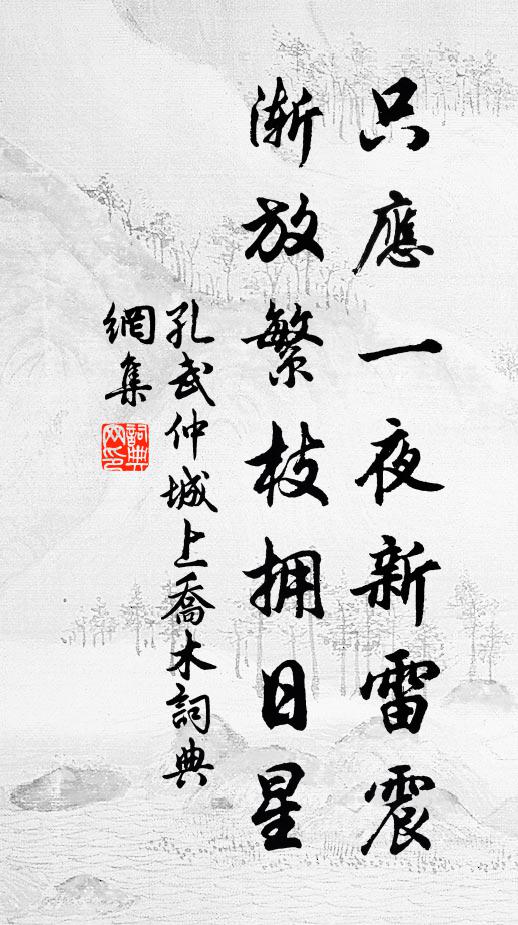 只應一夜新雷震
漸放繁枝拥日星
孔武仲城上喬木詞典
網集
詞典網印